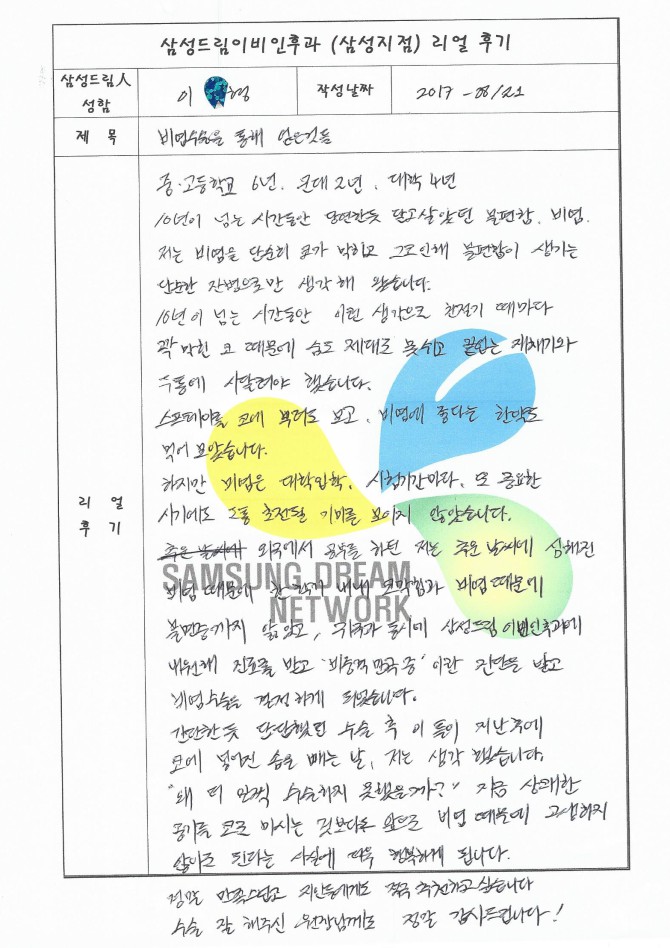 삼성드림이비인후과 (삼성지점) 리얼 후기
삼성드림人
성함
이 형
작성날짜
2017 - 08/21
제 목
비염수술을 통해 얻은것들
중·고등학교 6년, 군대 2년, 대학 4년
10년이 넘는 시간동안 당연한듯 달고살았던 불편함, 비염.
저는 비염을 단순히 코가 막히고 그로인해 불편함이 생기는
단순한 잔병으로만 생각해 왔습니다.
10년이 넘는 시간동안 이런 생각으로 환절기 때마다
꽉 막힌 코 때문에 숨도 제대로 못쉬고 끝없는 재채기와
두통에 시달려야 했습니다.
스프레이를 코에 뿌려도 보고, 비염에 좋다는 한약도
먹어 보았습니다.
하지만 비염은 대학입학, 시험기간마다, 또 중요한
시기에도 호전될 기미를 보이지 않았습니다.
리 얼
후 기
추운 날씨에 외국에서 공부를 하던 저는 추운 날씨에 심해진
비염 때문에 한 학기 내내 코막힘과 비염 때문에
불면증까지 앓았고, 귀국과 동시에 삼성드림 이비인후과에
내원해 진료를 받고 '비중격 만곡증' 이란 진단을 받고
비염수술을 결정하게 되었습니다.
간단한듯 단단했던 수술 후 이틀이 지난후에
코에 넣어진 솜을 빼는 날, 저는 생각했습니다.
"왜 더 일찍 수술하지 못했을까?" 지금 상쾌한
공기를 코로 마시는 것보다는 앞으로 비염 때문에 고생하지
않아도 된다는 사실에 더욱 행복하게 됩니다.
정말 만족스럽고 지인들에게도 적극 추천하고 싶습니다
수술 잘 해주신 원장님께도 정말 감사드립니다!
SAMSUNG DREAM
NETWORK